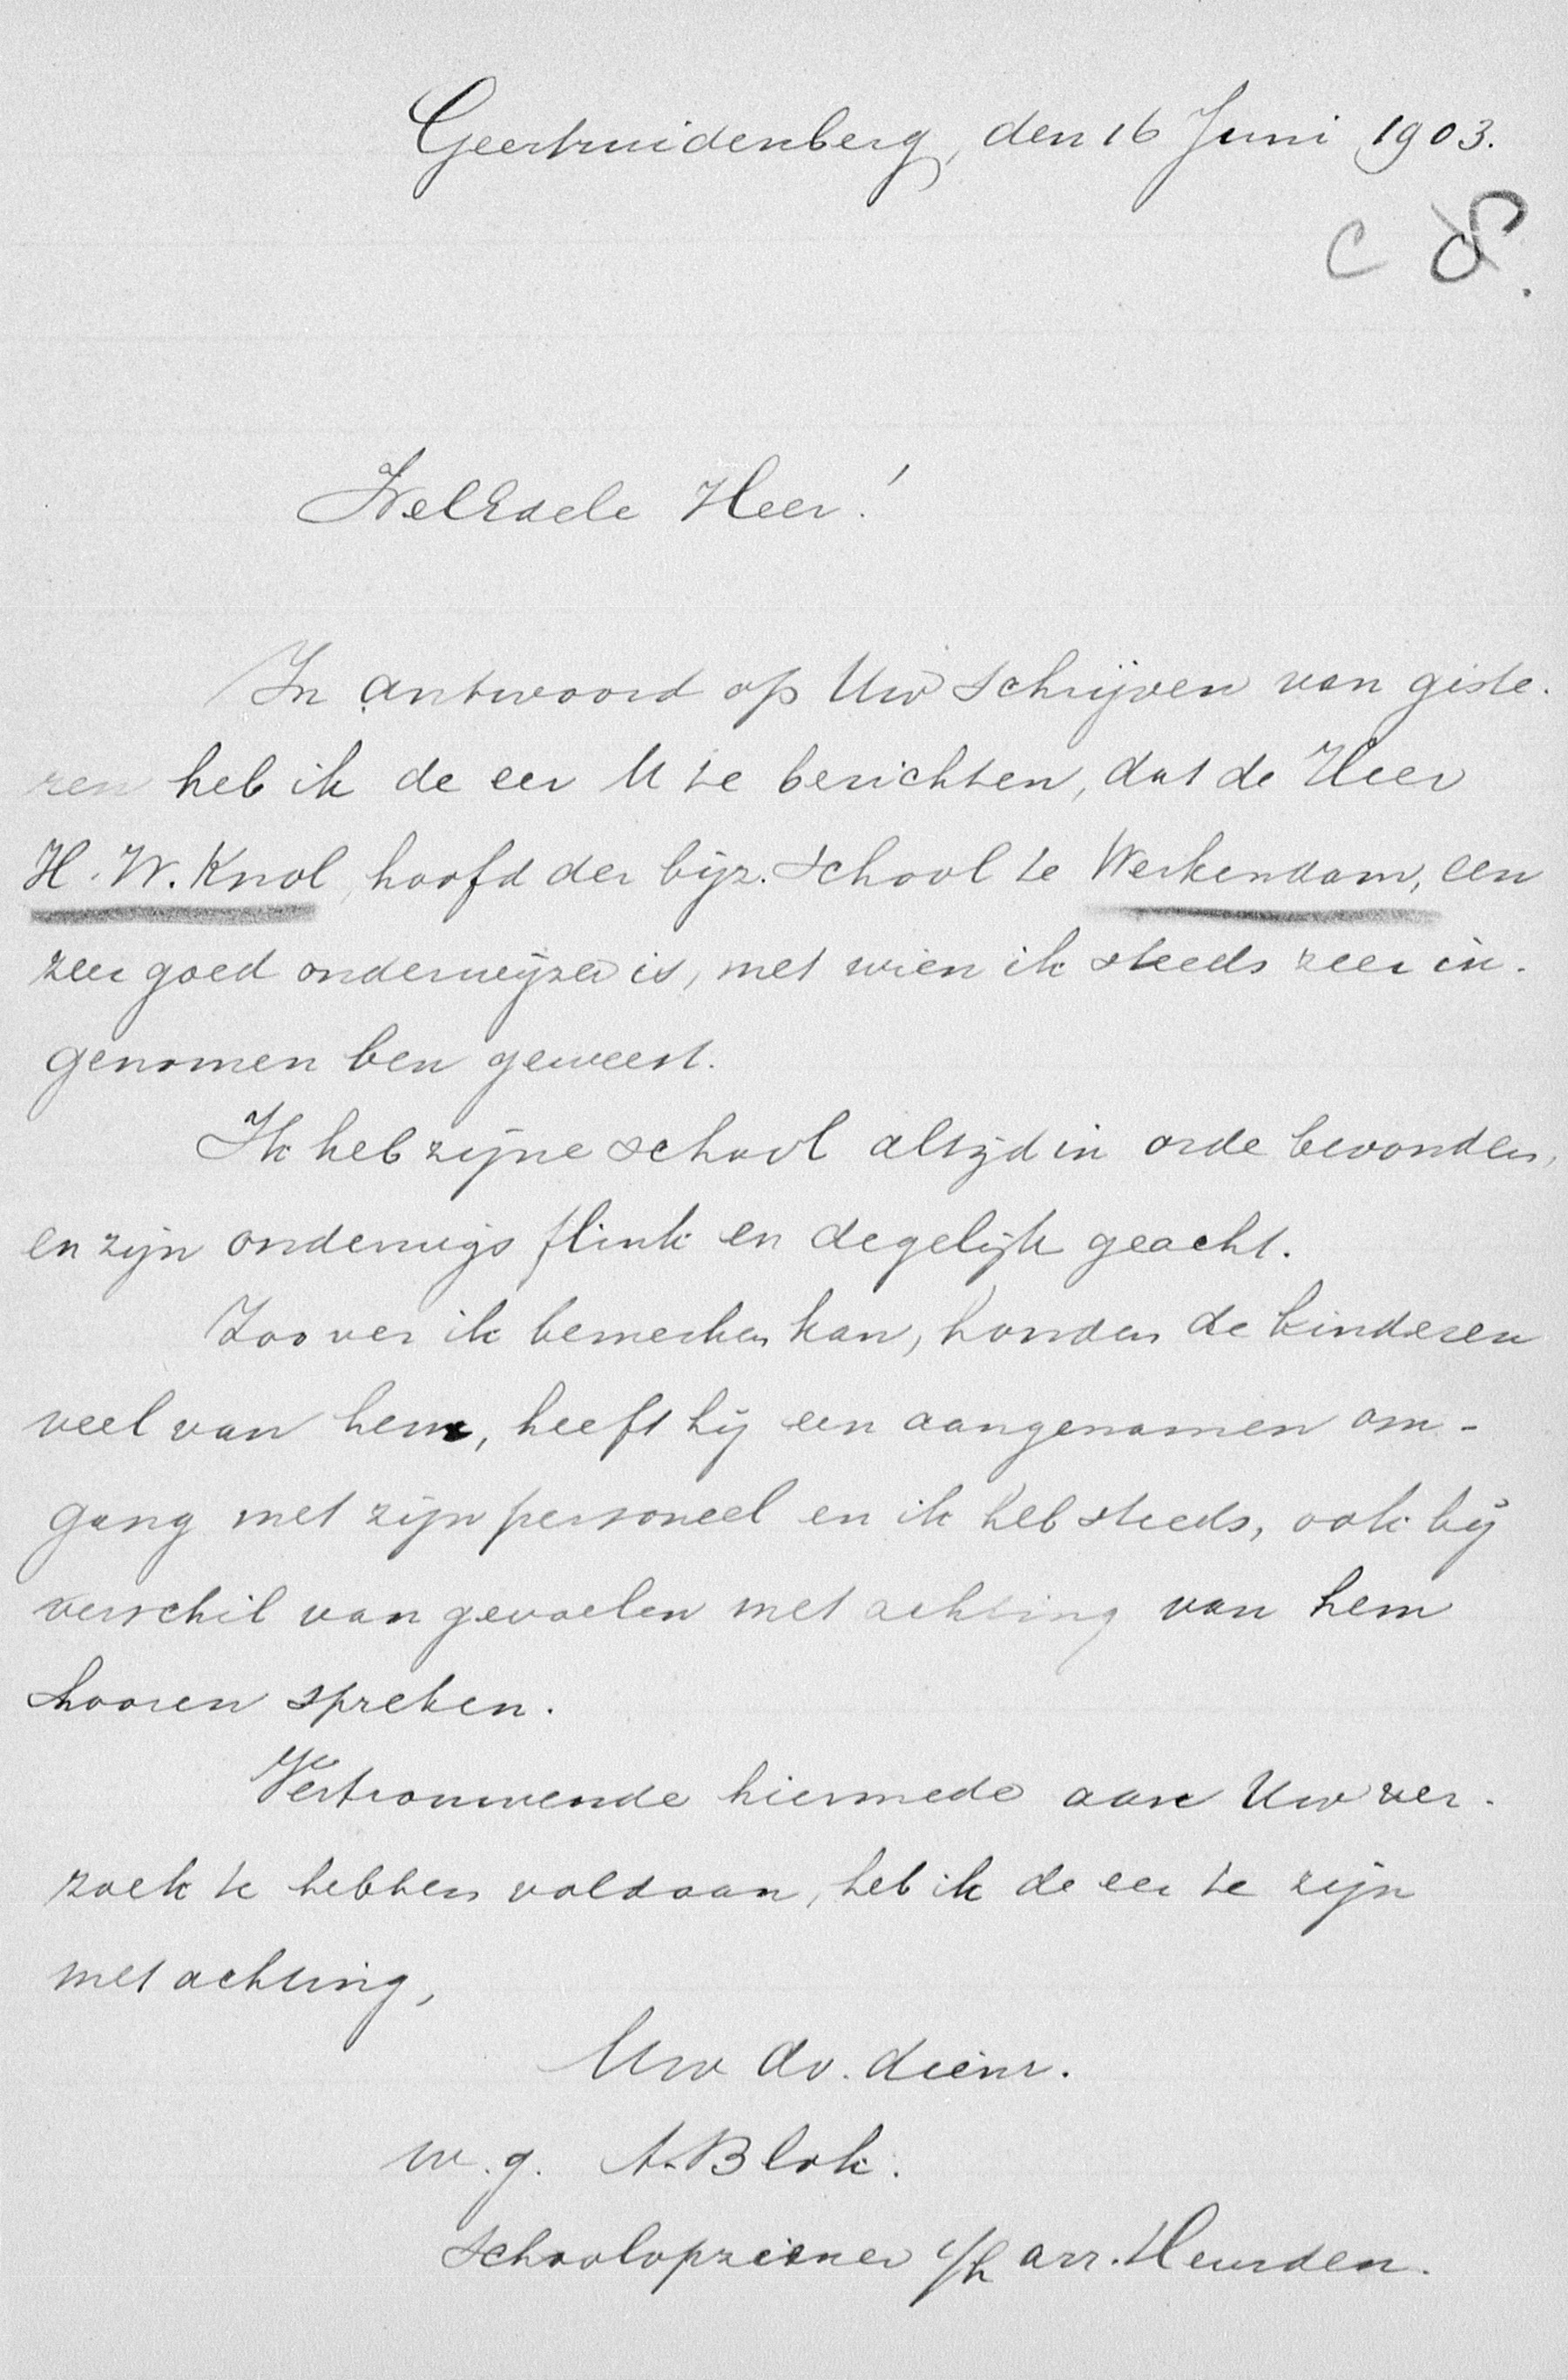 Geertruidenberg, den 16 Juni 1903.
C 8.
WelEdele Heer!
In antwoord op Uw schrijven van giste-
ren heb ik de eer U te berichten, dat de Heer
H. W. Knol, hoofd der bijz. School te Werkendam, een
zeer goed onderwijzer is, met wien ik steeds zeer in-
genomen ben geweest.
Ik heb zijne school altijd in orde bevonden,
en zijn onderwijs flink en degelijk geacht.
Zoover ik bemerken kan, houden de kinderen
veel van hem, heeft hij een aangenamen om-
gang met zijn personeel en ik heb steeds, ook bij
verschil van gevoelen met achting van hem
hooren spreken.
Vertrouwende hiermede aan Uw ver-
zoek te hebben voldaan, heb ik de eer te zijn
met achting,
Uw dv. dienr.
w.g. A. Blok.
Schoolopziener i/h arr. Heusden.